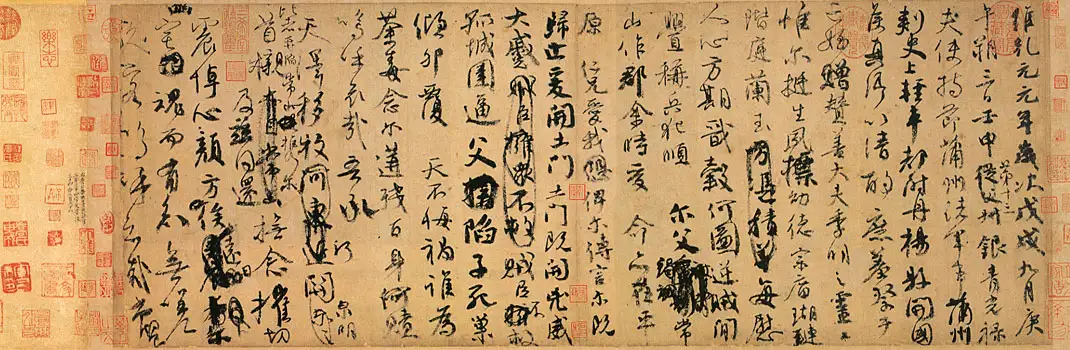 維乾元元年歲次戊戌九月庚
午朔三日壬申第十三叔銀青光祿
夫使持節蒲州諸軍事蒲州
刺史上輕車都尉丹楊縣開國
侯真卿以清酌庶羞祭于
亡姪贈贊善大夫季明之靈曰
惟爾挺生夙標幼德宗廟瑚璉
階庭蘭玉方憑積善每慰
人心方期戩穀何圖逆賊間
釁稱兵犯順爾父竭誠常
山作郡余時受命亦在平
原仁兄愛我俾爾傳言爾既
歸止爰開土門土門既開凶威
大蹙賊臣擁衆不救賊臣不救
孤城圍逼父陷子死巢
傾卵覆天不悔禍誰為
荼毒念爾遘殘百身何贖
嗚乎哀哉吾承
天澤移牧河東近河關泉明
比者再陷常山攜爾
首櫬及茲同還撫念摧切
震悼心顏方俟遠日
宅魂而有知無嗟
久客嗚呼哀哉尚饗